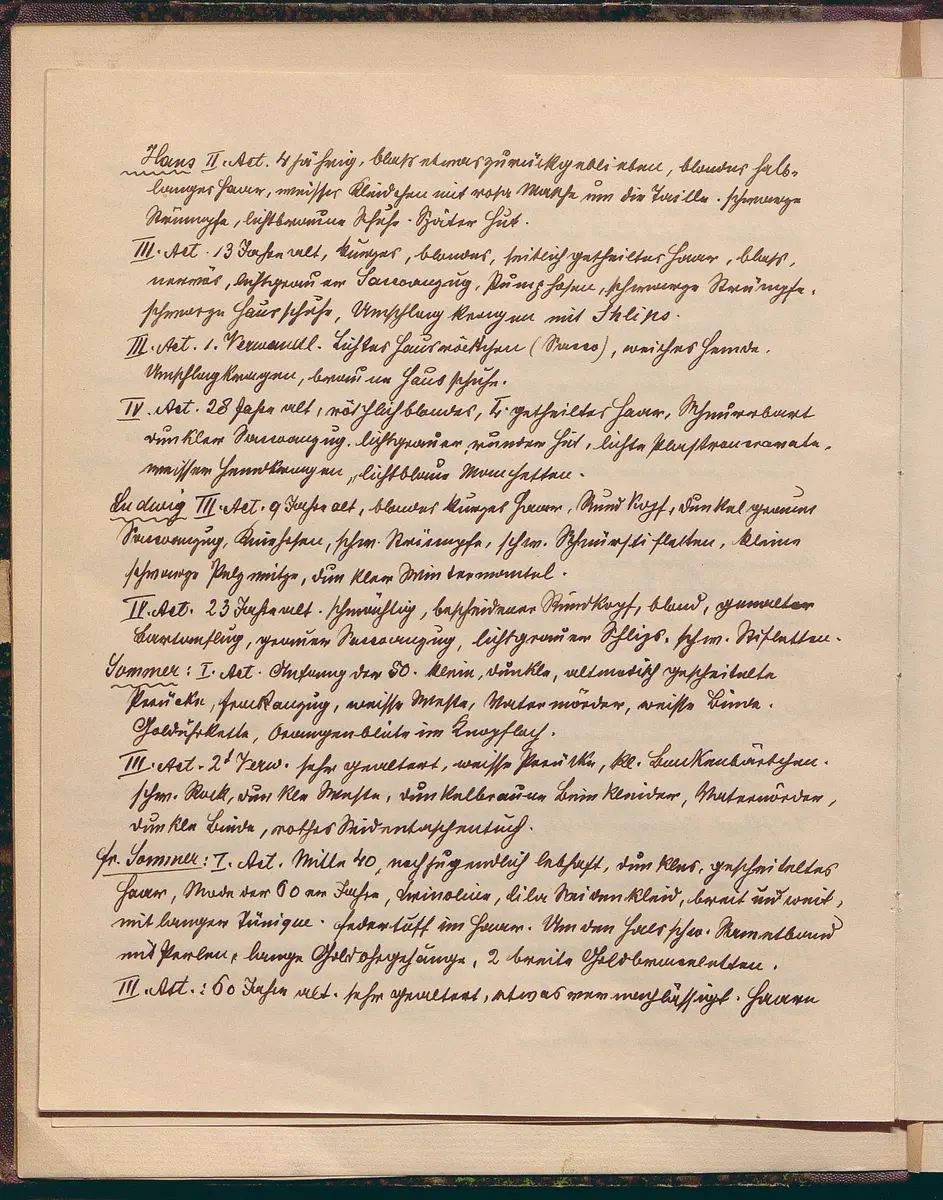 Hans II. Act. 4 jährig, blass etwas zurückgeblieben, blondes halb-
langes Haar, weisses Kleidchen mit rosa Masche um die Taille. schwarze
Strümpfe, lichtbraune Schuhe. Später Hut.
III. Act. 13 Jahre alt, kurzes, blondes, seitlich getheiltes Haar, blass,
nervös, lichtgrauer Saccoanzug, Pumphosen, schwarze Strümpfe.
schwarze Hausschuhe, Umschlagkragen mit Shlips.
III. Act. 1. Verwandl. Lichtes Hausröckchen (Sacco), weiches Hemd.
Umschlagkragen, braune Hausschuhe.
IV. Act. 28 Jahre alt, röthlichblondes, getheiltes Haar, Schnurrbart
dunkler Saccoanzug. lichtgrauer, runder Hut, lichte Plastroncravate,
weisser Hemdkragen, lichtblaue Manchetten.
Ludwig III. Act. 9 Jahre alt, blondes kurzes Haar, Rundkopf, dunkelgrauer
Saccoanzug, Kniehosen, schw. Strümpfe, schw. Schnürstifletten, kleine
schwarze Pelzmütze, dunkler Wintermantel.
IV. Act. 23 Jahre alt. schmächtig, bescheidener Rundkopf, blond, gemalter
Bartanflug, grauer Saccoanzug, lichtgrauer Schlips. schw. Stifletten.
Sommer: I. Act. Anfang der 50. klein, dunkle, altmodisch gescheitelte
Perücke, Frackanzug, weisse Weste, Vatermörder, weisse Binde.
Golduhrkette, Orangenblüte im Knopfloch.
III. Act. 2t Verw. sehr gealtert, weisse Perücke, kl. Backenbärtchen.
schw. Rock, dunkle Weste, dunkelbraune Beinkleider, Vatermörder,
dunkle Binde, rothes Seidentaschentuch.
Fr. Sommer: I. Act. Mitte 40, noch jugendlich lebhaft, dunkles, gescheiteltes
Haar, Mode der 60er Jahre, Crinoline, lila Seidenkleid, breit und weit,
mit langer Tunique. Federtuff im Haar. Um den Hals schw. Sammetband
mit Perlen, lange Goldohrgehänge, 2 breite Goldbraceletten.
III. Act.: 60 Jahre alt. sehr gealtert, etwas vernachlässigt. Haare